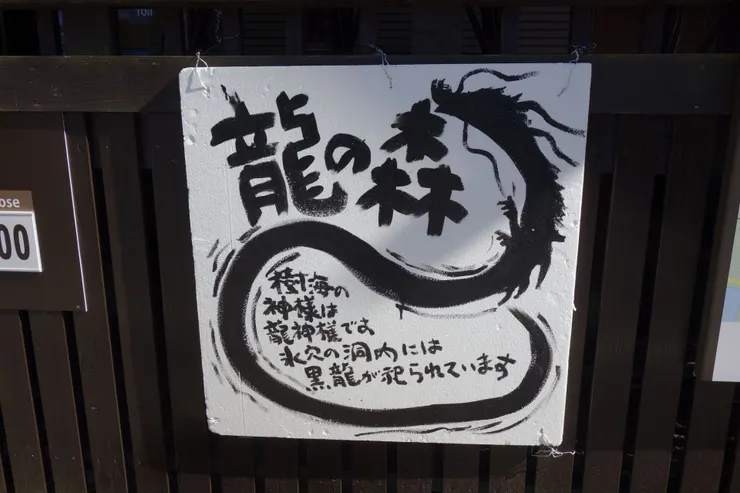 龍の森
樹海の
神様は
龍神様です。
氷穴の洞内には
黒龍が祀られています
ose
00